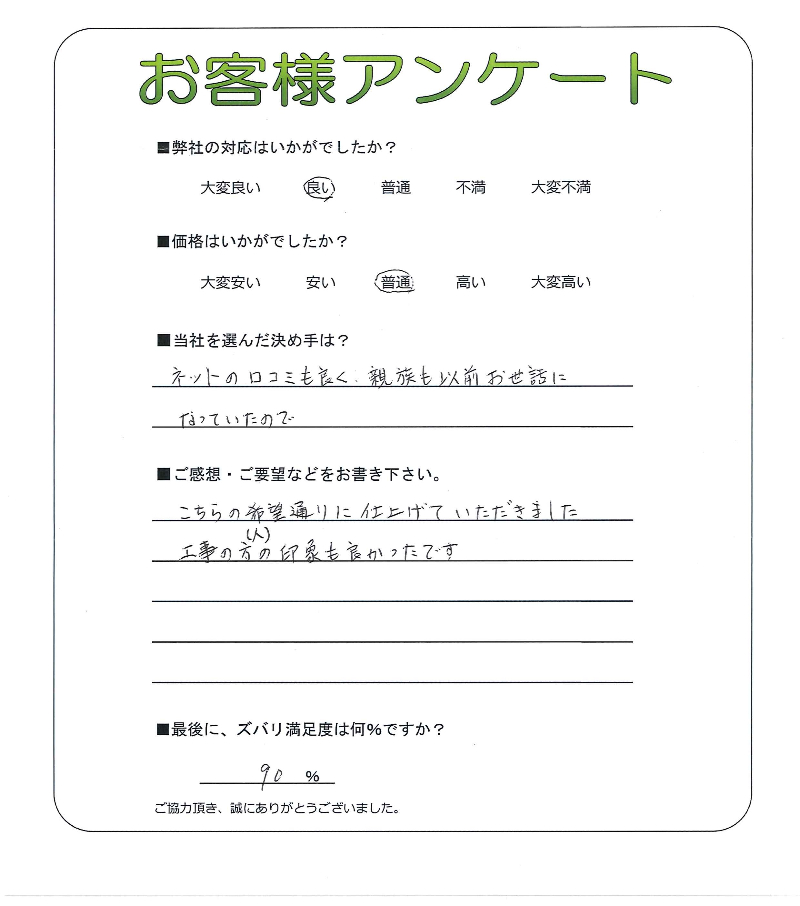 お客様アンケート
■弊社の対応はいかがでしたか？
大変良い 良い 普通 不満 大変不満
■価格はいかがでしたか？
大変安い 安い 普通 高い 大変高い
■当社を選んだ決め手は？
ネットの口コミも良く、親族も以前お世話に
なっていたので
■ご感想・ご要望などをお書き下さい。
こちらの希望通りに仕上げていただきました
(人)
工事の方の印象も良かったです
■最後に、ズバリ満足度は何％ですか？
90 ％
ご協力頂き、誠にありがとうございました。